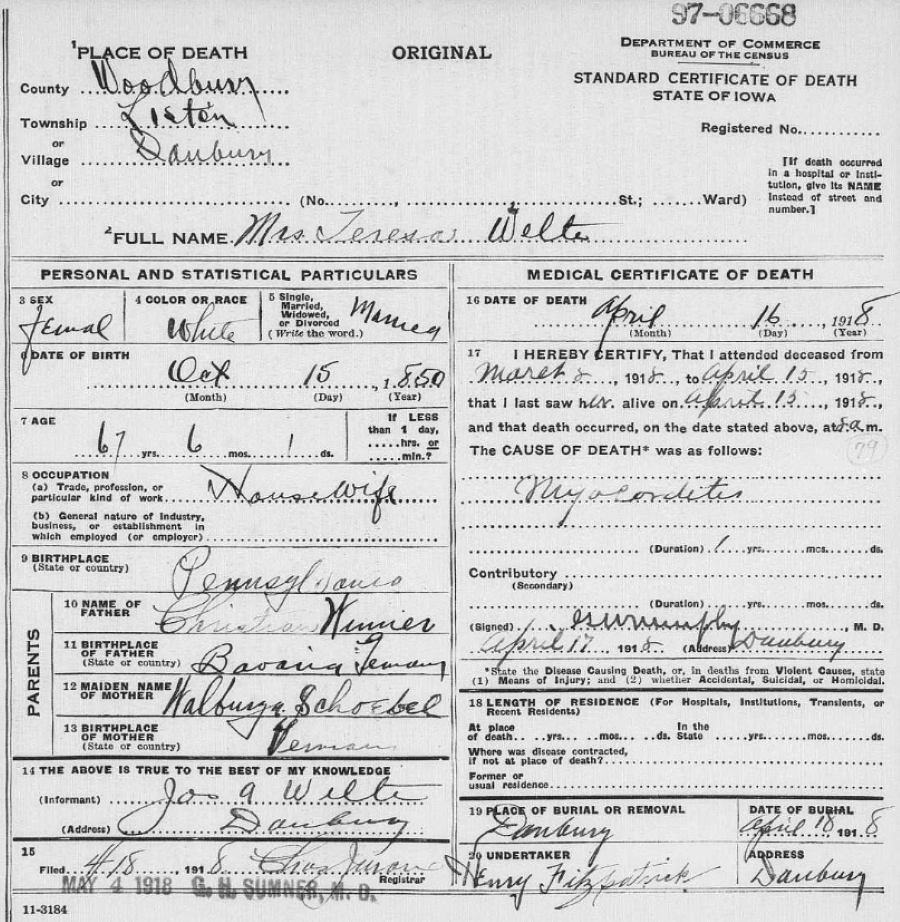 97-06668
1 PLACE OF DEATH
ORIGINAL
DEPARTMENT OF COMMERCE
BUREAU OF THE CENSUS
STANDARD CERTIFICATE OF DEATH
STATE OF IOWA
County Woodbury
Township Liston
or
Village Danbury
or
City (No. , St.; Ward)
Registered No.
[If death occurred
in a hospital or insti-
tution, give its NAME
instead of street and
number.]
2 FULL NAME Mrs. Teresa Welte
PERSONAL AND STATISTICAL PARTICULARS
3 SEX
Femal
4 COLOR OR RACE
White
5 Single,
Married,
Widowed,
or Divorced
(Write the word.)
Married
6 DATE OF BIRTH
Oct 15, 1850
(Month) (Day) (Year)
7 AGE
67 yrs. 6 mos. 1 ds.
If LESS
than 1 day,
hrs. or
min.?
8 OCCUPATION
(a) Trade, profession, or
particular kind of work House Wife
(b) General nature of industry,
business, or establishment in
which employed (or employer)
9 BIRTHPLACE
(State or country)
Pennsylvania
PARENTS
10 NAME OF
FATHER
Christian
11 BIRTHPLACE
OF FATHER
(State or country)
Bavaria Germany
12 MAIDEN NAME
OF MOTHER
Walburga Schoebel
13 BIRTHPLACE
OF MOTHER
(State or country)
14 THE ABOVE IS TRUE TO THE BEST OF MY KNOWLEDGE
(Informant) Jos A Welte
(Address) Danbury
15
Filed 4/18, 1918 Chas
Registrar
MAY 4 1918 G. H. SUMNER, M. D.
11-3184
MEDICAL CERTIFICATE OF DEATH
16 DATE OF DEATH
April 16, 1918
(Month) (Day) (Year)
17 I HEREBY CERTIFY, That I attended deceased from
March 2, 1918, to April 15, 1918,
that I last saw her alive on April 15, 1918,
and that death occurred, on the date stated above, at 8 a m.
The CAUSE OF DEATH* was as follows:
(79)
Myocordites
(Duration) 1 yrs. mos. ds.
Contributory
(Secondary)
(Duration) yrs. mos. ds.
(Signed) , M. D.
April 17 1918 (Address) Danbury
*State the Disease Causing Death, or, in deaths from Violent Causes, state
(1) Means of Injury; and (2) whether Accidental, Suicidal, or Homicidal.
18 LENGTH OF RESIDENCE (For Hospitals, Institutions, Transients, or
Recent Residents)
At place
of death yrs. mos. ds.
In the
State yrs. mos. ds.
Where was disease contracted,
if not at place of death?
Former or
usual residence
19 PLACE OF BURIAL OR REMOVAL
Danbury
DATE OF BURIAL
April 18 1918
20 UNDERTAKER
Henry Fitzpatrick
ADDRESS
Danbury